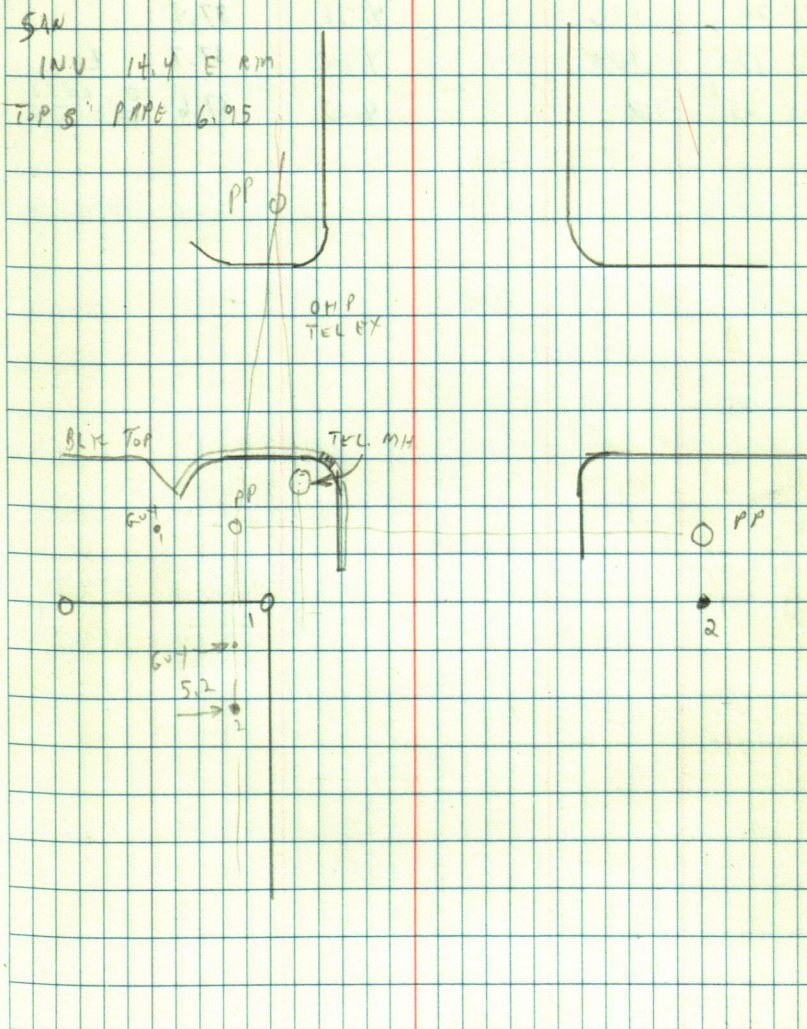 SAN
INV 14.4 E RM
TOP 8" PAPE 6.95
PP
OHP
TEL EX
BLK TOP
TEL. MH
PP
GUT
PP
1
2
GUY
5.2
2